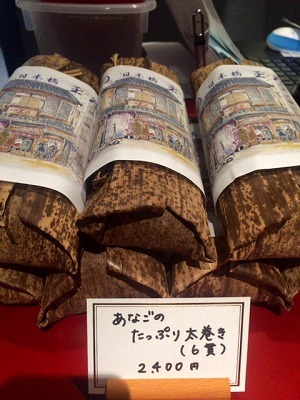 日本橋 玉
日本橋 玉
日本橋
あなごの
たっぷり太巻き
(6貫)
2,400円